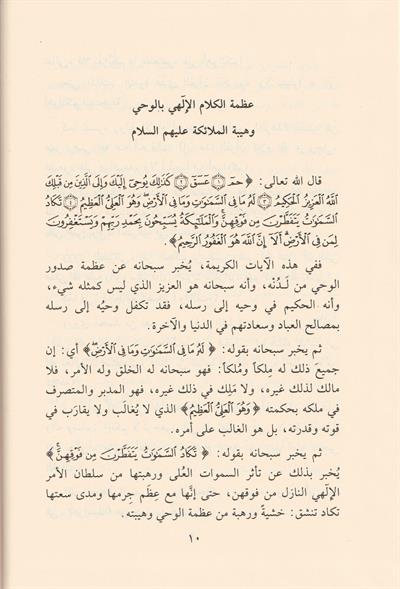 عظمة الكلام الإلٓهي بالوحي
وهيبة الملائكة عليهم السلام
قال الله تعالى: ﴿حمٓ ۝١ عٓسٓقٓ ۝٢ كَذَٰلِكَ يُوحِىٓ إِلَيْكَ وَإِلَى ٱلَّذِينَ مِن قَبْلِكَ
ٱللَّهُ ٱلْعَزِيزُ ٱلْحَكِيمُ ۝٣ لَهُۥ مَا فِى ٱلسَّمَٰوَٰتِ وَمَا فِى ٱلْأَرْضِ وَهُوَ ٱلْعَلِىُّ ٱلْعَظِيمُ ۝٤ تَكَادُ
ٱلسَّمَٰوَٰتُ يَتَفَطَّرْنَ مِن فَوْقِهِنَّ وَٱلْمَلَٰٓئِكَةُ يُسَبِّحُونَ بِحَمْدِ رَبِّهِمْ وَيَسْتَغْفِرُونَ
لِمَن فِى ٱلْأَرْضِ أَلَآ إِنَّ ٱللَّهَ هُوَ ٱلْغَفُورُ ٱلرَّحِيمُ﴾.
ففي هذه الآيات الكريمة، يُخبر سبحانه عن عظمة صدور
الوحي من لَدُنْه، وأنه سبحانه هو العزيز الذي ليس كمثله شيء،
وأنه الحكيم في وحيه إلى رسله، فقد تكفل وحيُه إلى رسله
بمصالح العباد وسعادتهم في الدنيا والآخرة.
ثم يخبر سبحانه بقوله: ﴿لَهُۥ مَا فِى ٱلسَّمَٰوَٰتِ وَمَا فِى ٱلْأَرْضِ﴾ أي: إن
جميعَ ذلك له مِلكاً ومُلكاً: فهو سبحانه له الخلق وله الأمر، فلا
مالك لذلك غيره، ولا مَلِك في ذلك غيره، فهو المدبر والمتصرف
في ملكه بحكمته ﴿وَهُوَ ٱلْعَلِىُّ ٱلْعَظِيمُ﴾ الذي لا يُغالَب ولا يقارَب في
قوته وقدرته، بل هو الغالب على أمره.
ثم يخبر سبحانه بقوله: ﴿تَكَادُ ٱلسَّمَٰوَٰتُ يَتَفَطَّرْنَ مِن فَوْقِهِنَّ﴾
يُخبر بذلك عن تأثر السموات العُلى ورهبتها من سلطان الأمر
الإلٓهي النازل من فوقهن، حتى إنَّها مع عِظَم جِرمها ومدى سعتها
تكاد تنشق: خشيةً ورهبة من عظمة الوحي وهيبته.
١٠